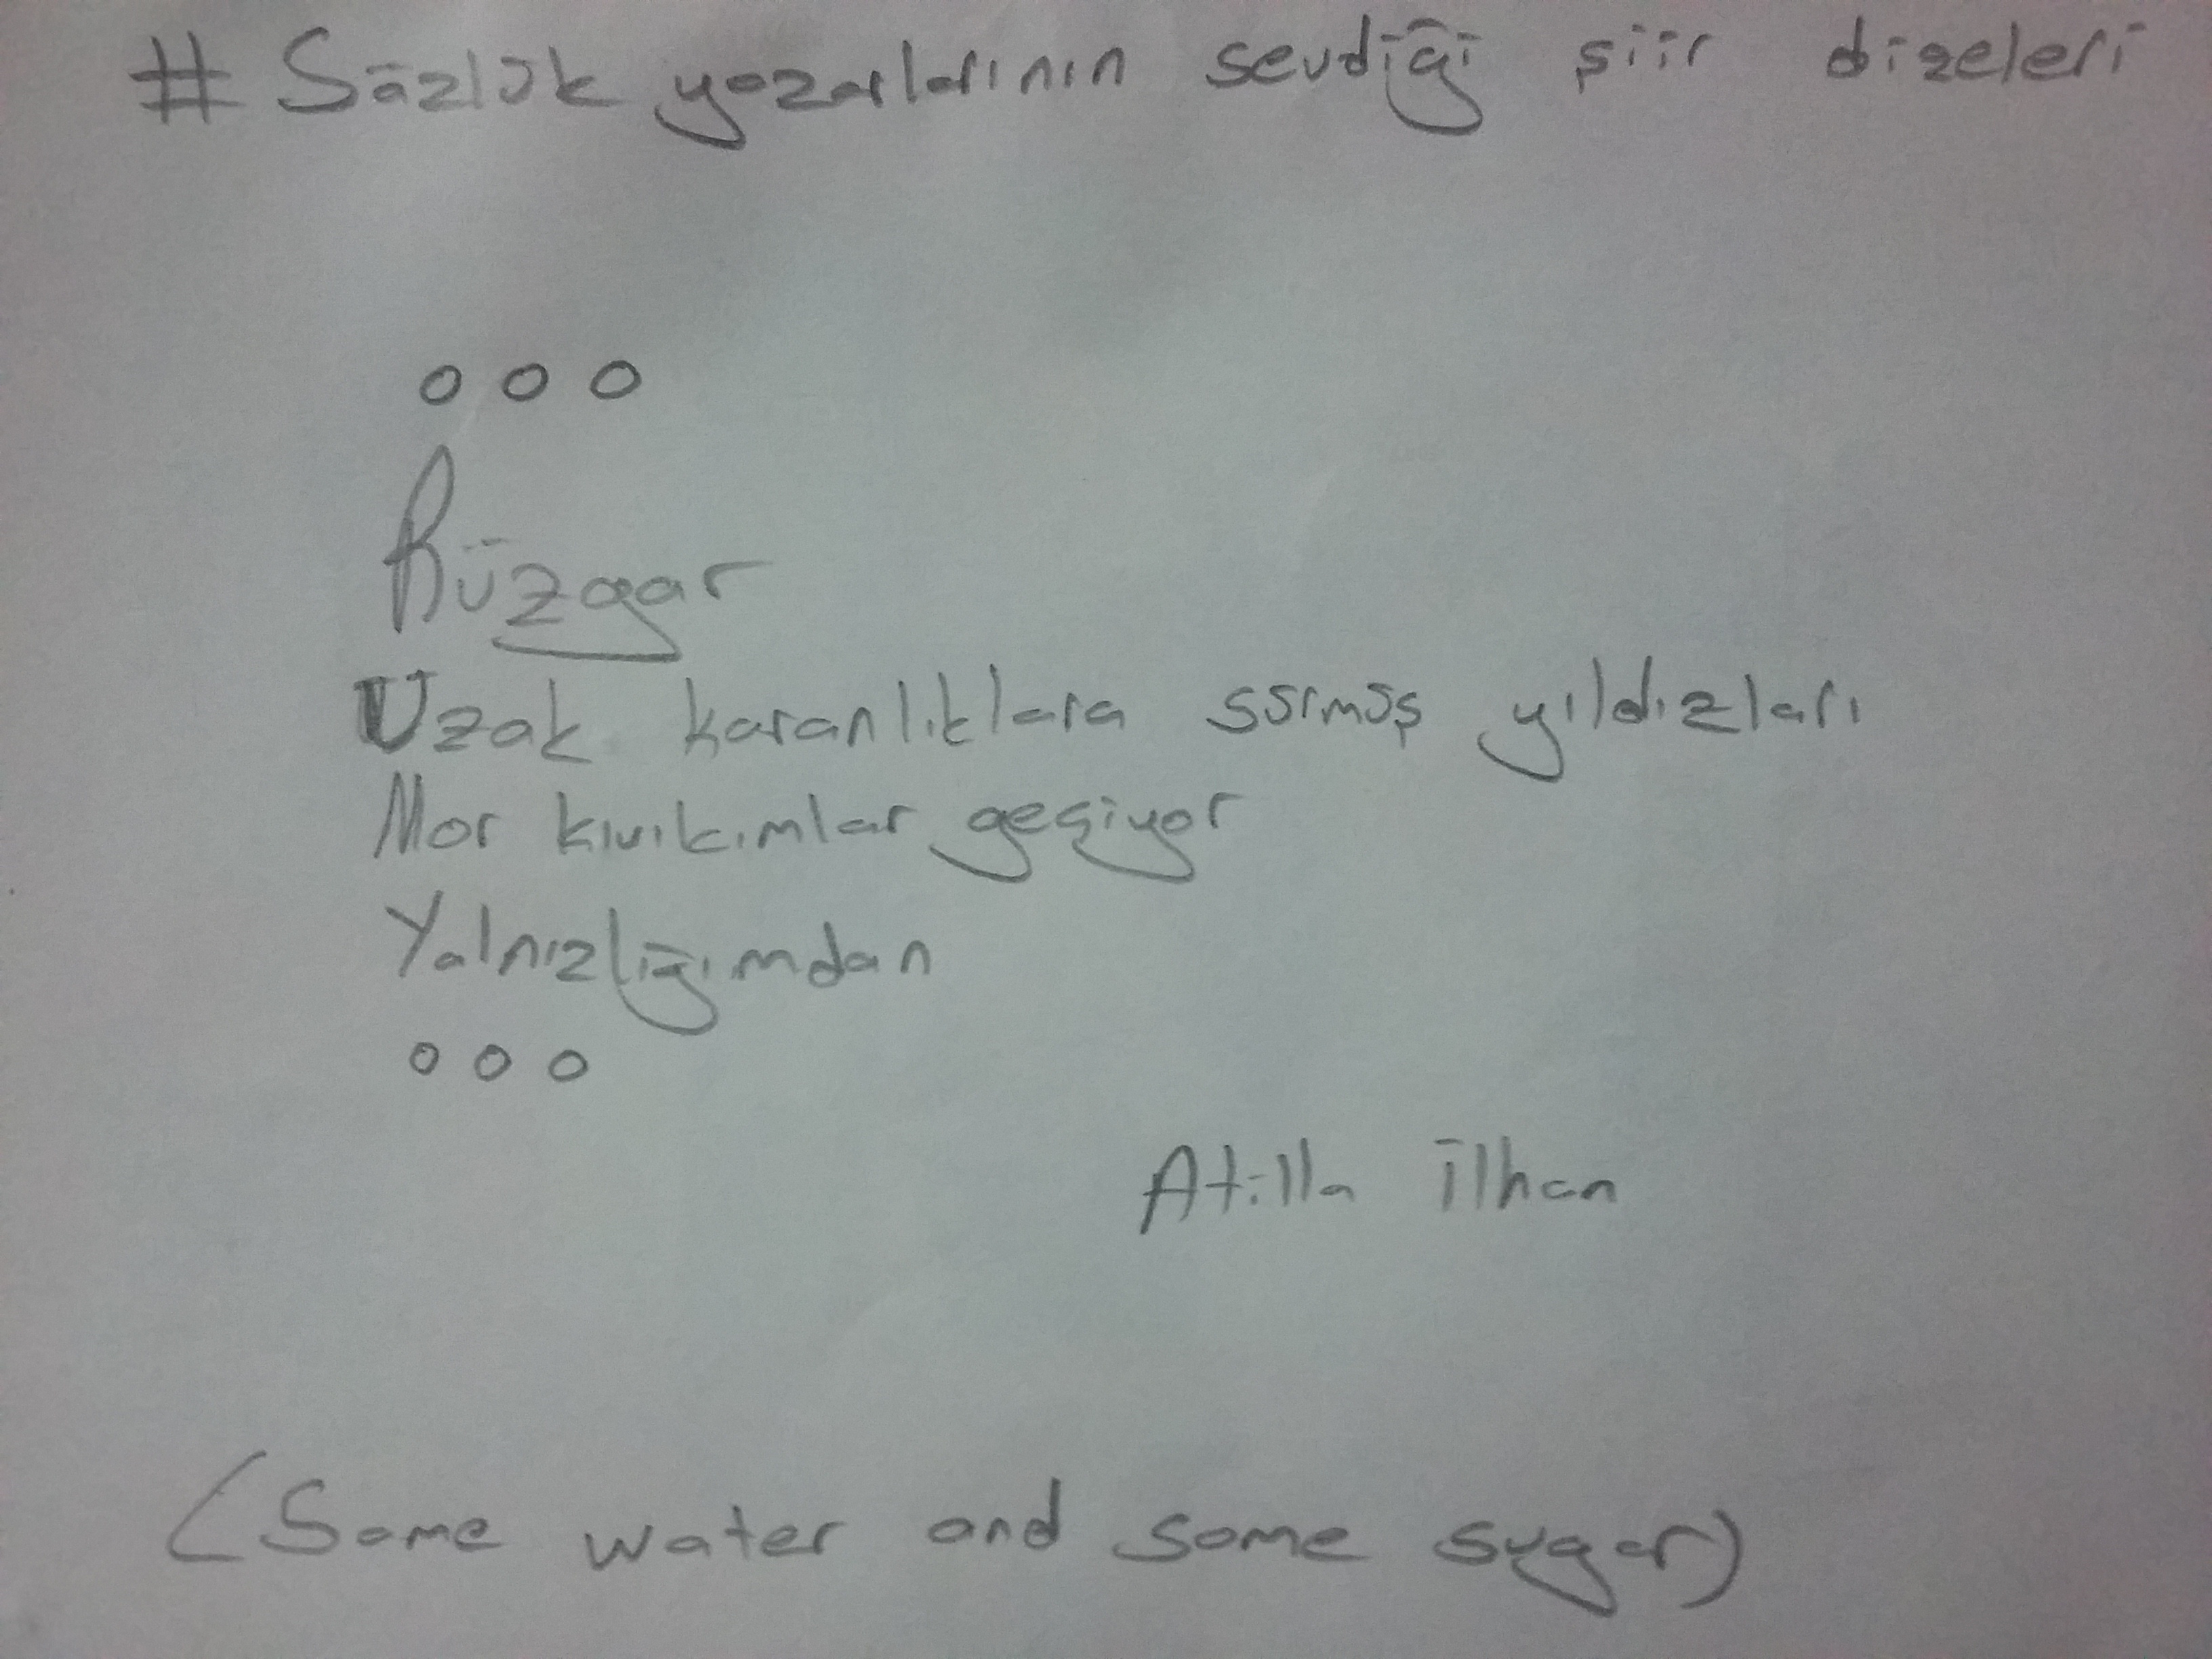 # Sözlük yazarlarının sevdiği şiir dizeleri
o o o
Rüzgar
Uzak karanlıklara sürmüş yıldızları
Mor kıvıkımlar geçiyor
Yalnızlığımdan
o o o
Atilla ilhan
(Some water and some sugar)